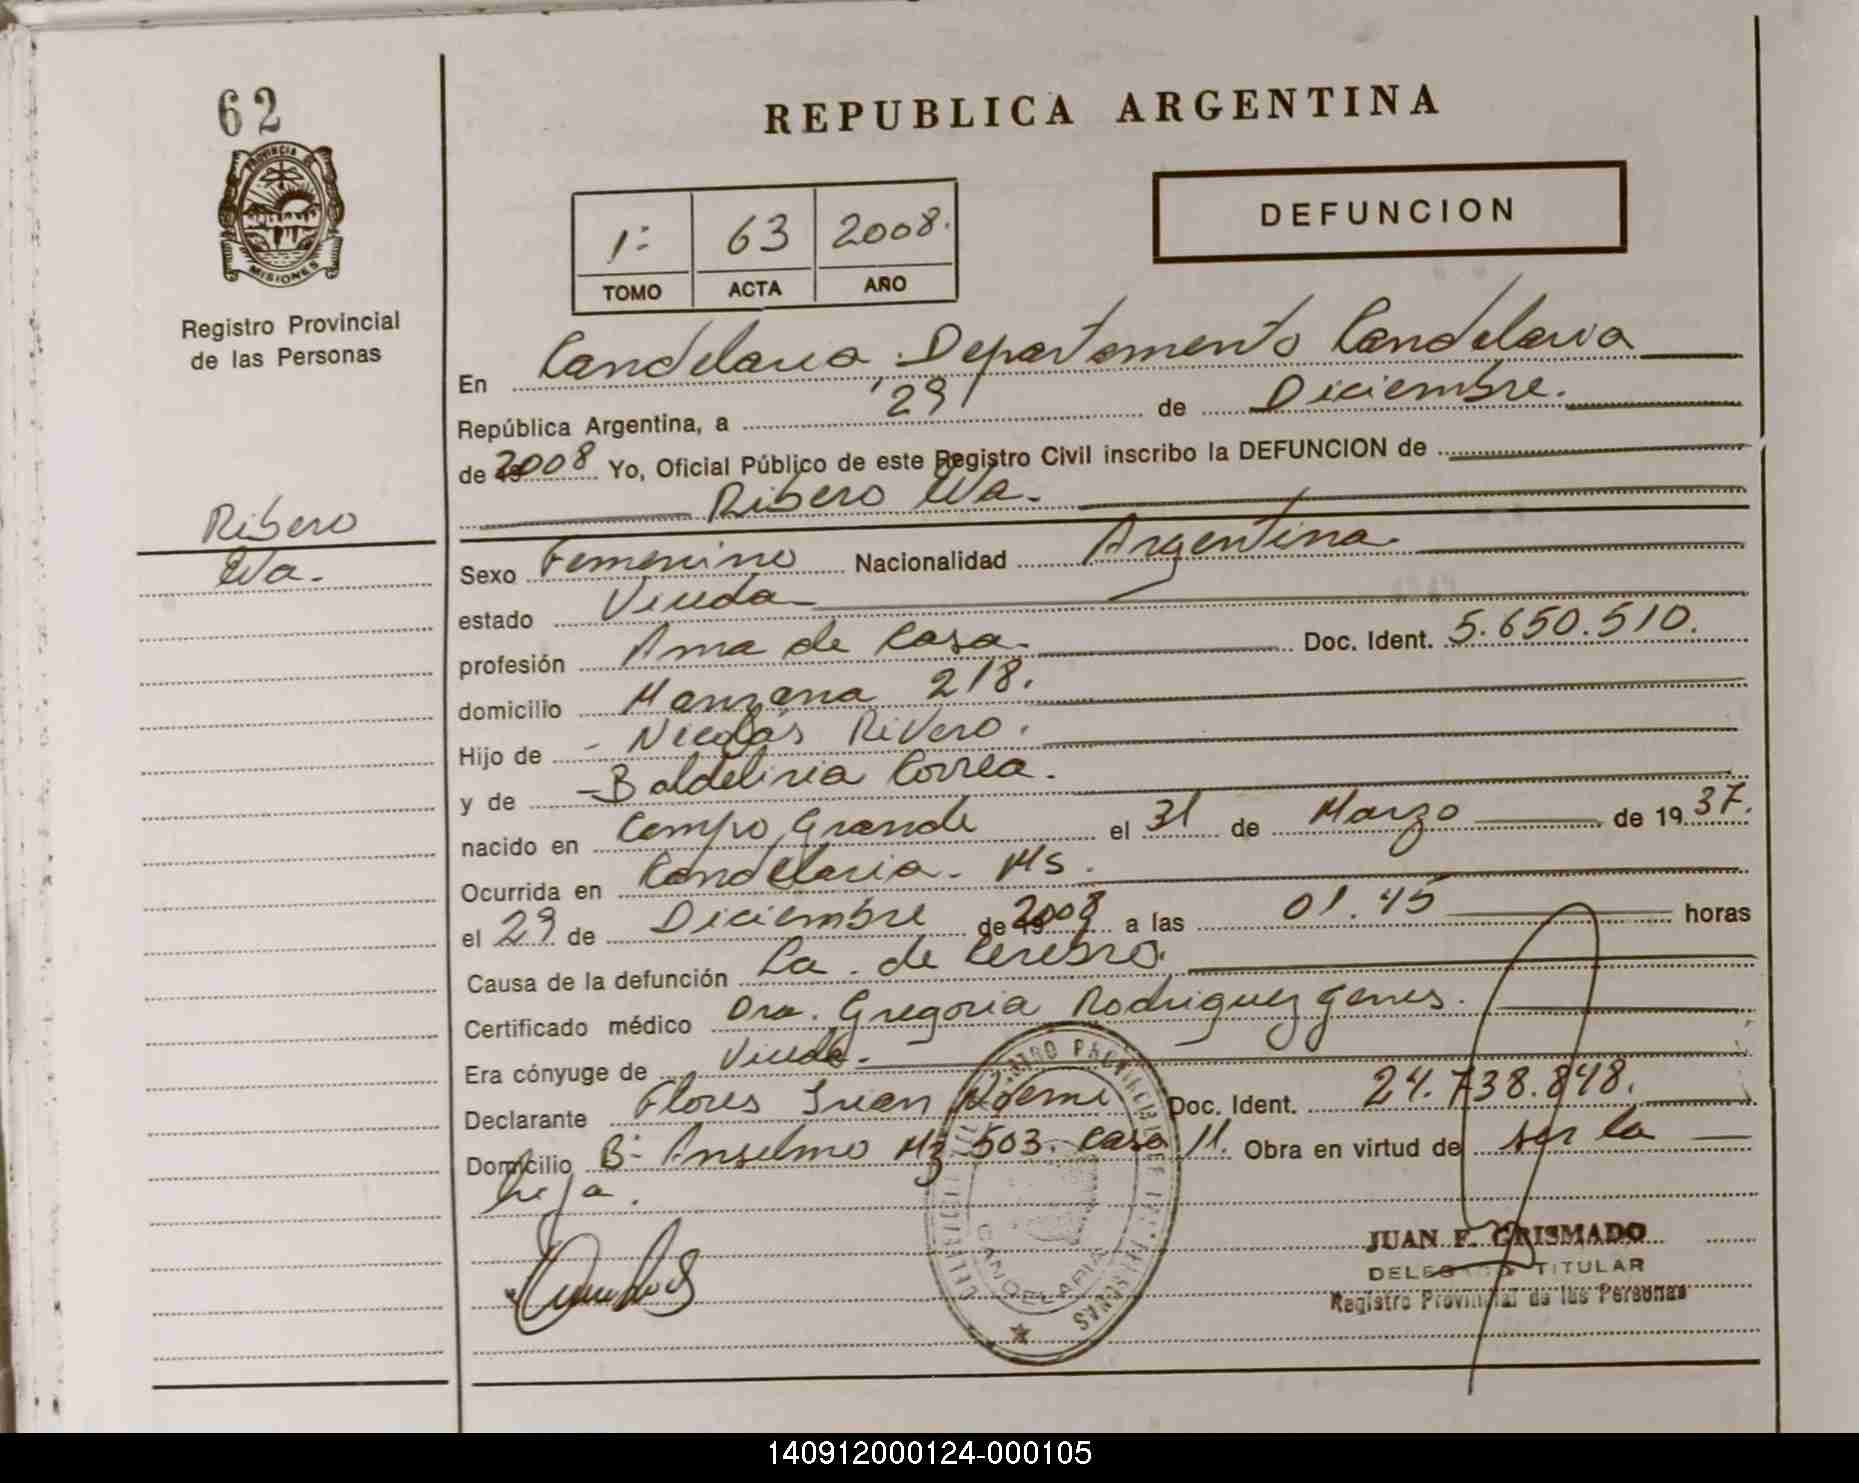 62
PROVINCIA DE
MISIONES
Registro Provincial
de las Personas
REPUBLICA ARGENTINA
1: 63 2008.
TOMO ACTA AÑO
DEFUNCION
En Candelaria Departamento Candelaria
República Argentina, a 29 de Diciembre.
de 2008 Yo, Oficial Público de este Registro Civil inscribo la DEFUNCION de
Ribero Eva.
Ribero
Eva.
Sexo Femenino Nacionalidad Argentina.
estado Viuda
profesión Ama de Casa. Doc. Ident. 5.650.510.
domicilio Manzana 218.
Hijo de - Nicolás Rivero.
y de - Baldelinia Correa.
nacido en Campo Grande el 31 de Marzo de 1937.
Ocurrida en Candelaria. Ms.
el 29 de Diciembre de 2008 a las 01.45 horas
Causa de la defunción Ca. de Cerebro.
Certificado médico Dra. Gregoria Rodriguez Genes.
Era cónyuge de Viuda.
Declarante Flores Noemi Doc. Ident. 24.738.848.
Domicilio B- Anselmo Mz 503. Casa 11. Obra en virtud de ser la
hija.
CANDELARIA
JUAN F. GRISMADO
DELEGADO TITULAR
Registro Provincial de las Personas
140912000124-000105